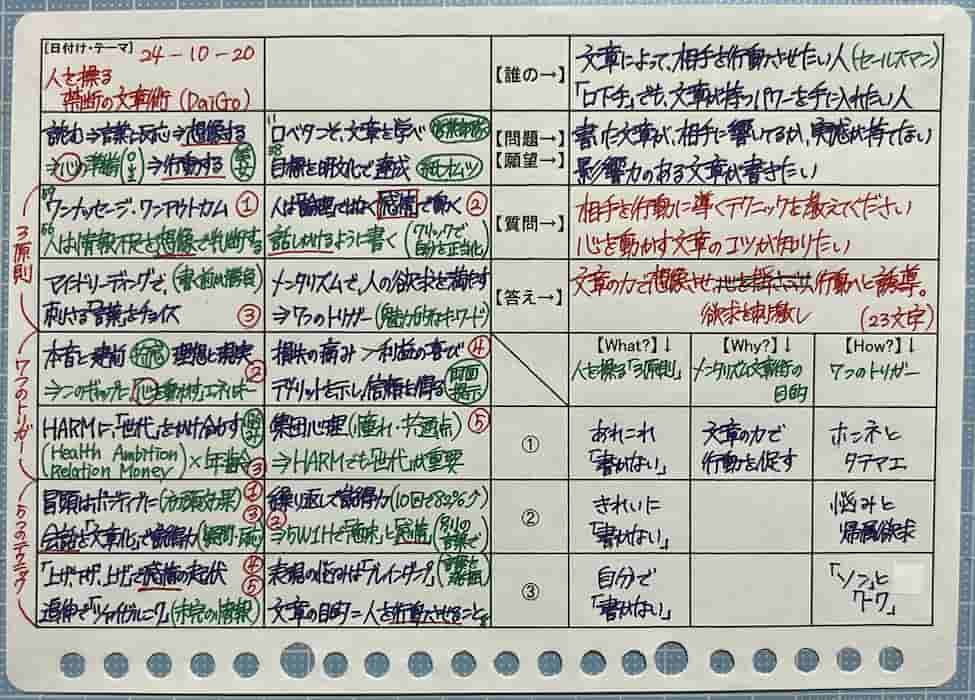 【日付け・テーマ】 24-10-20
人を操る
禁断の文章術 (DaiGo)
【誰の→】
文章によって、相手を行動させたい人(セールスマン)
「口下手」でも、文章が持つパワーを手に入れたい人
読む⇒言葉と反応⇒想像する
⇒心の準備 ⇒行動する
口ベタこそ、文章を学べ
目標を明文化で達成 (紙オムツ)
【問題→】
【願望→】
書いた文章が、相手に響いてるか、実感が持てない
影響力のある文章が書きたい
3原則
ワンメッセージ・ワンアウトカム ①
人は情報不足を想像で判断する
人は論理ではなく感情で動く ②
話しかけるように書く (クリックで自分を正当化)
【質問→】
相手を行動に導くテクニックを教えてください
心を動かす文章のコツが知りたい
マインドリーディングで、(書く前が勝負)
刺さる「言葉」をチョイス ③
メンタリズムで、人の欲求を満たす
⇒7つのトリガー
【答え→】
文章の力で想像させ 行動へと誘導。
欲求を刺激し (23文字)
7つのトリガー
本音と建前 理想と現実 ②
⇒このギャップを、心を動かすエネルギー
損失の痛み>利益の喜び ④
デメリットを示し、信頼を得る (両面提示)
【What?】↓
人を操る「3原則」
【Why?】↓
メンタリズム文章術の
目的
【How?】↓
7つのトリガー
HARMに、「世代」をかけ合わす
(Health Ambition
Relation Money)×年齢 ③
集団心理(憧れ・共通点) ⑤
⇒HARMでも「世代」が重要
①
あれこれ
「書かない」
文章の力で
行動を促す
ホンネと
タテマエ
5つのテクニック
冒頭はポジティブに(初頭効果) ①
会話を「文章化」で説得力 (疑問・反応) ③
繰り返して説得力(10回で82%↗)
② ⇒5W1Hで「意味」と感情 (別の言葉で)
②
きれいに
「書かない」
悩みと
帰属欲求
「上げ、下げ、上げ」で感情の起伏 ④
追伸で「ツァイガルニーク」(未完の情報) ⑤
文章の目的=人を行動させること。
③
自分で
「書かない」
「ソン」と